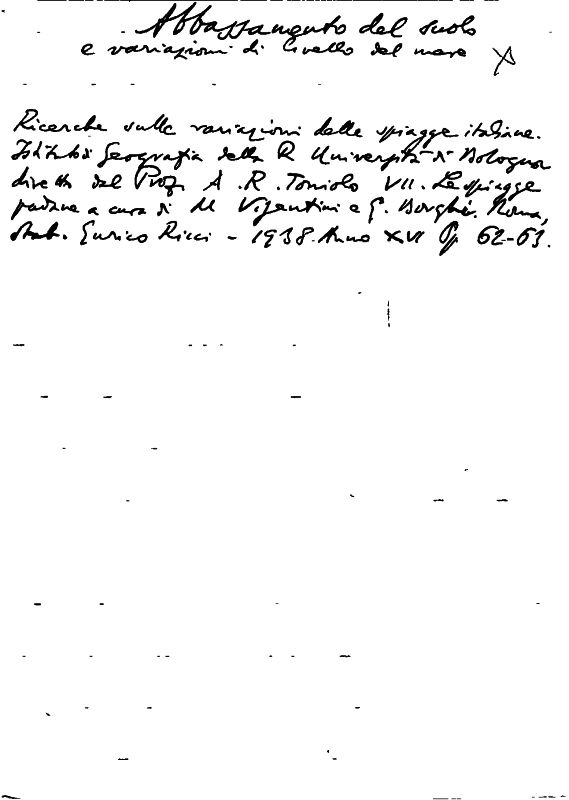 Abbassamento del suolo
e variazioni di livello del mare
Ricerche sulle variazioni delle spiagge italiane.
Istituto di Geografia della R Università di Bologna
diretto dal Prof. A. R. Toniolo VII. Le spiagge
padane a cura di M Visentini e G. Borghi. Roma,
Stab. Enrico Ricci - 1938. Anno XVI Pp 62-63.